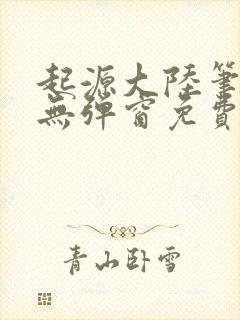 起源大陸筆
無彈窗免費
青山卧雪